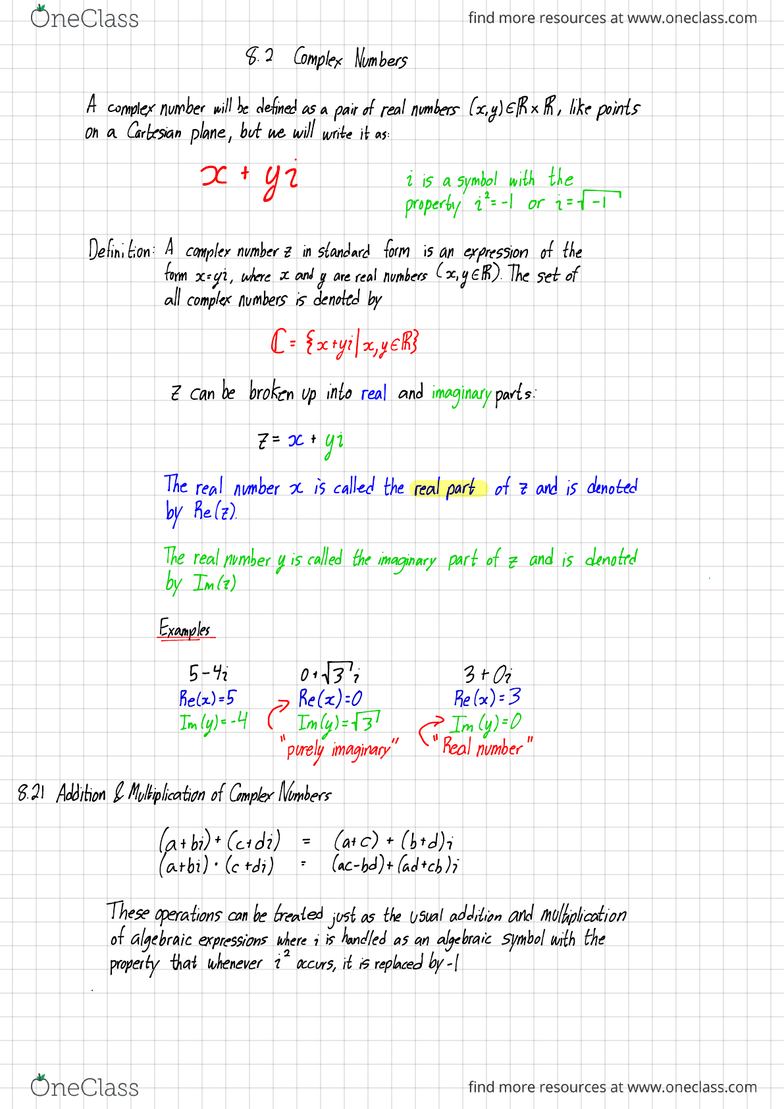 OneClass
find more resources at www.oneclass.com
8.2 Complex Numbers
A complex number will be defined as a pair of real numbers (x,y)∈ℝ×ℝ, like points
on a Cartesian plane, but we will write it as:
x + yi
i is a symbol with the
property i²=-1 or i=√-1
Definition: A complex number z in standard form is an expression of the
form x=yi, where x and y are real numbers (x,y∈ℝ). The set of
all complex numbers is denoted by
ℂ = {x+yi|x,y∈ℝ}
z can be broken up into real and imaginary parts:
z = x + yi
The real number x is called the real part of z and is denoted
by Re(z).
The real number y is called the imaginary part of z and is denoted
by Im(z)
Examples
5-4i 0+√3 i 3+0i
Re(x)=5 Re(x)=0 Re(x)=3
Im(y)=-4 Im(y)=√3 Im(y)=0
"purely imaginary" "Real number"
8.21 Addition & Multiplication of Complex Numbers
(a+bi)+(c+di) = (a+c)+(b+d)i
(a+bi)·(c+di) = (ac-bd)+(ad+cb)i
These operations can be treated just as the usual addition and multiplication
of algebraic expressions where i is handled as an algebraic symbol with the
property that whenever i² occurs, it is replaced by -1
OneClass
find more resources at www.oneclass.com